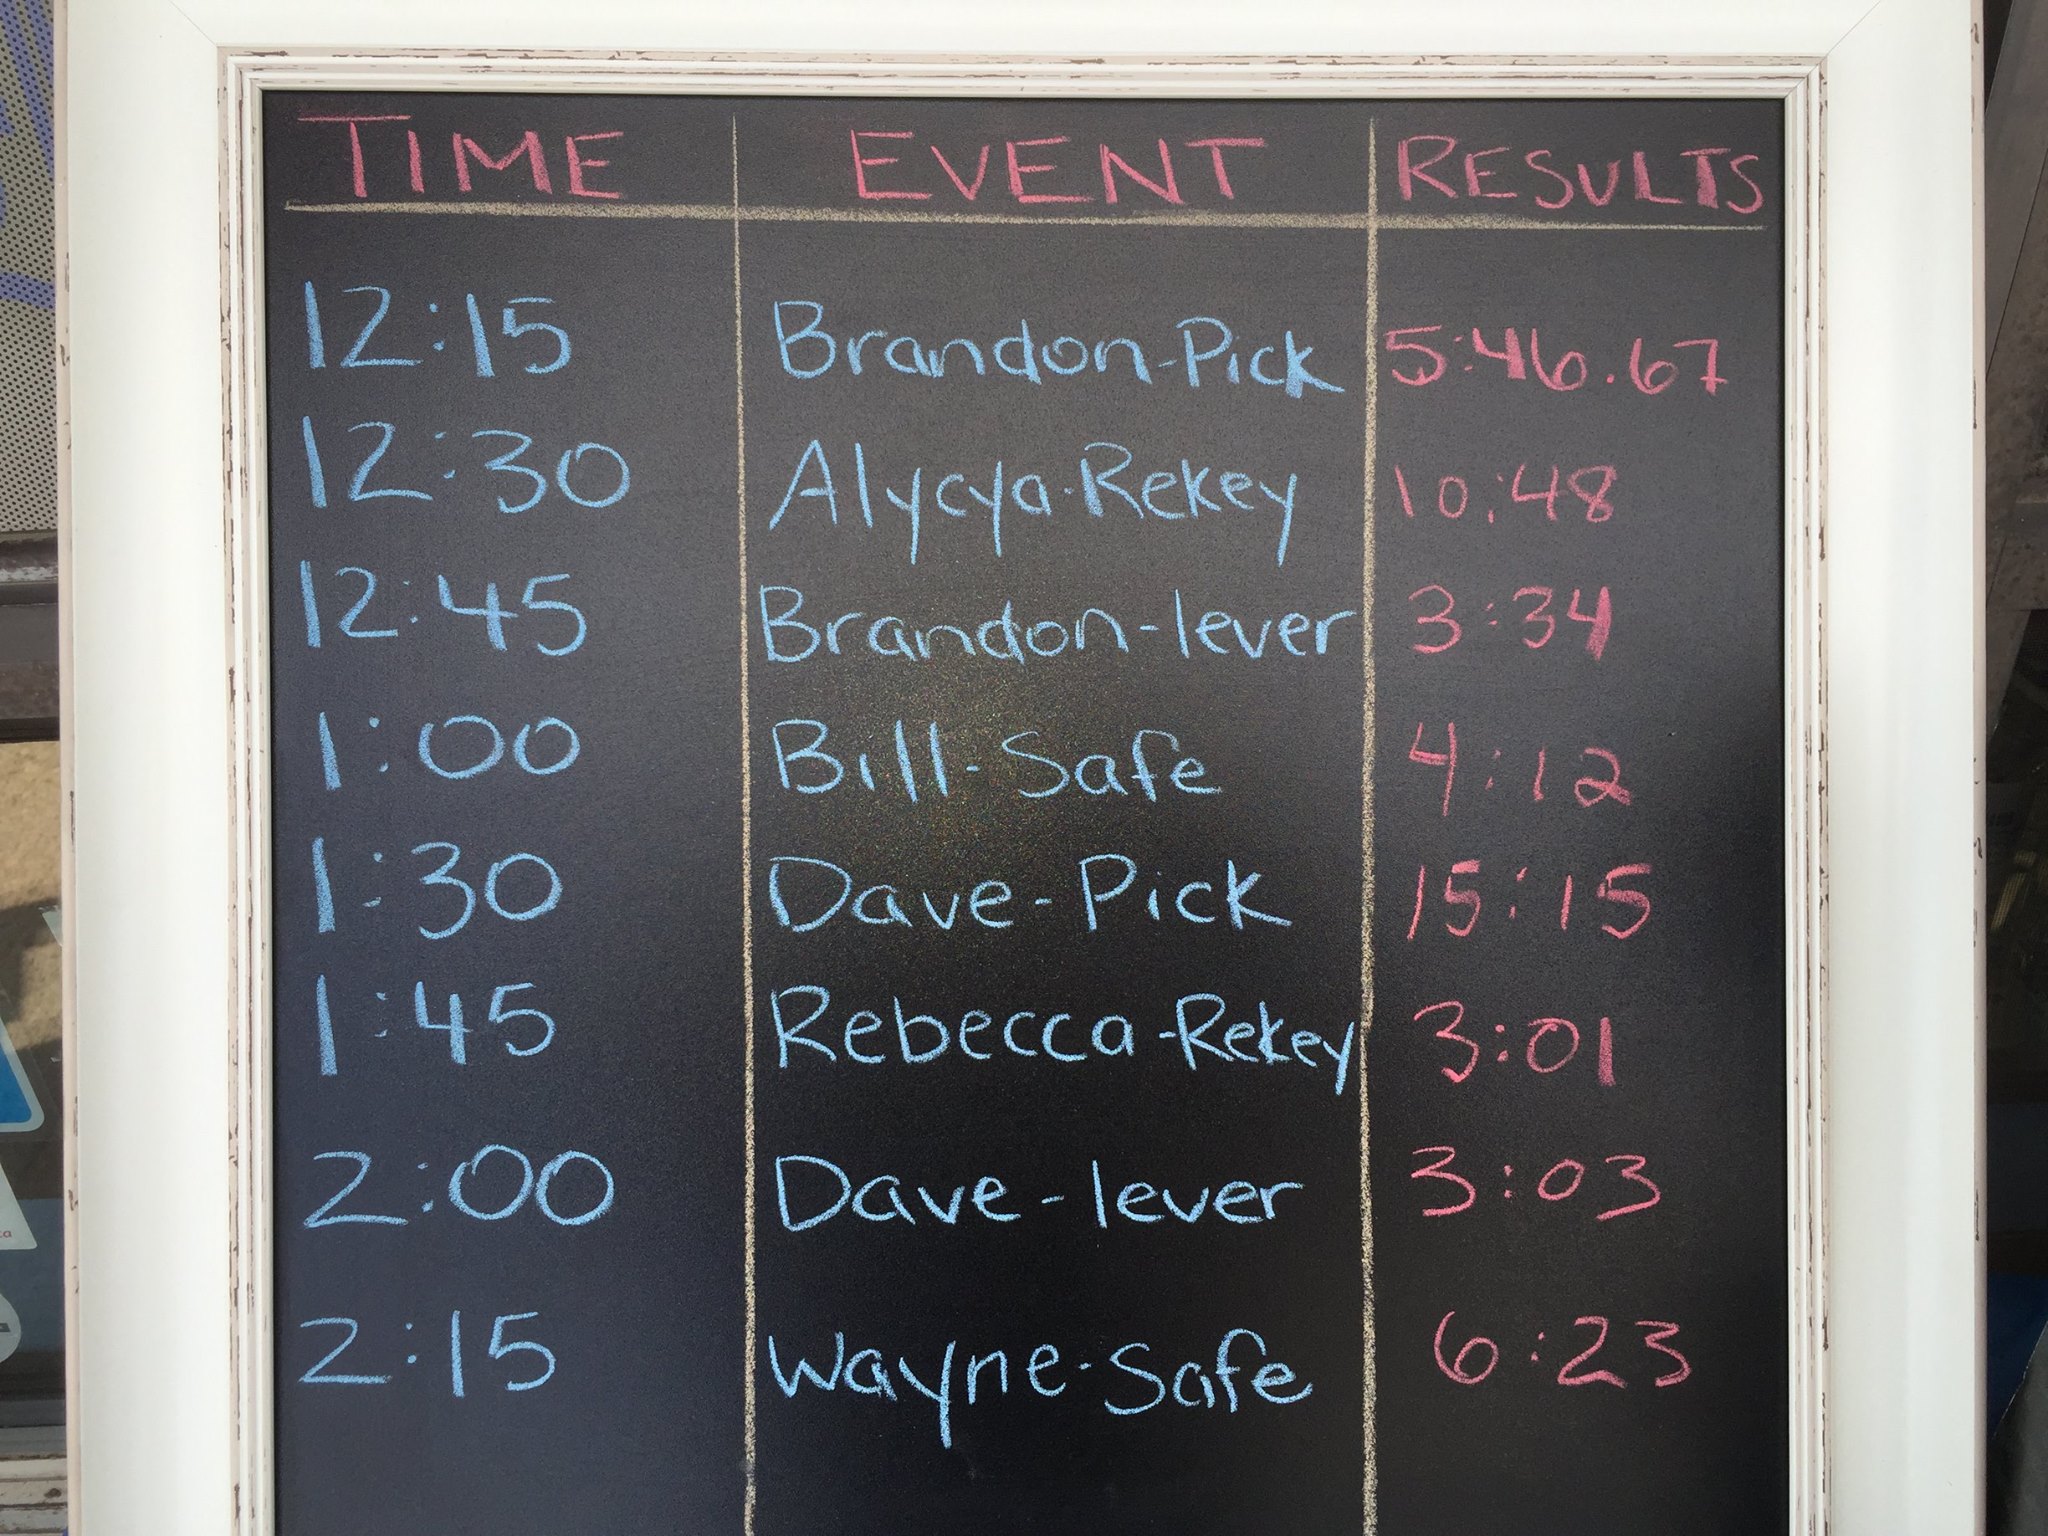 TIME EVENT RESULTS
12:15 Brandon-Pick 5:46.67
12:30 Alycya-Rekey 10:48
12:45 Brandon-lever 3:34
1:00 Bill-Safe 4:12
1:30 Dave-Pick 15:15
1:45 Rebecca-Rekey 3:01
2:00 Dave-lever 3:03
2:15 Wayne-Safe 6:23